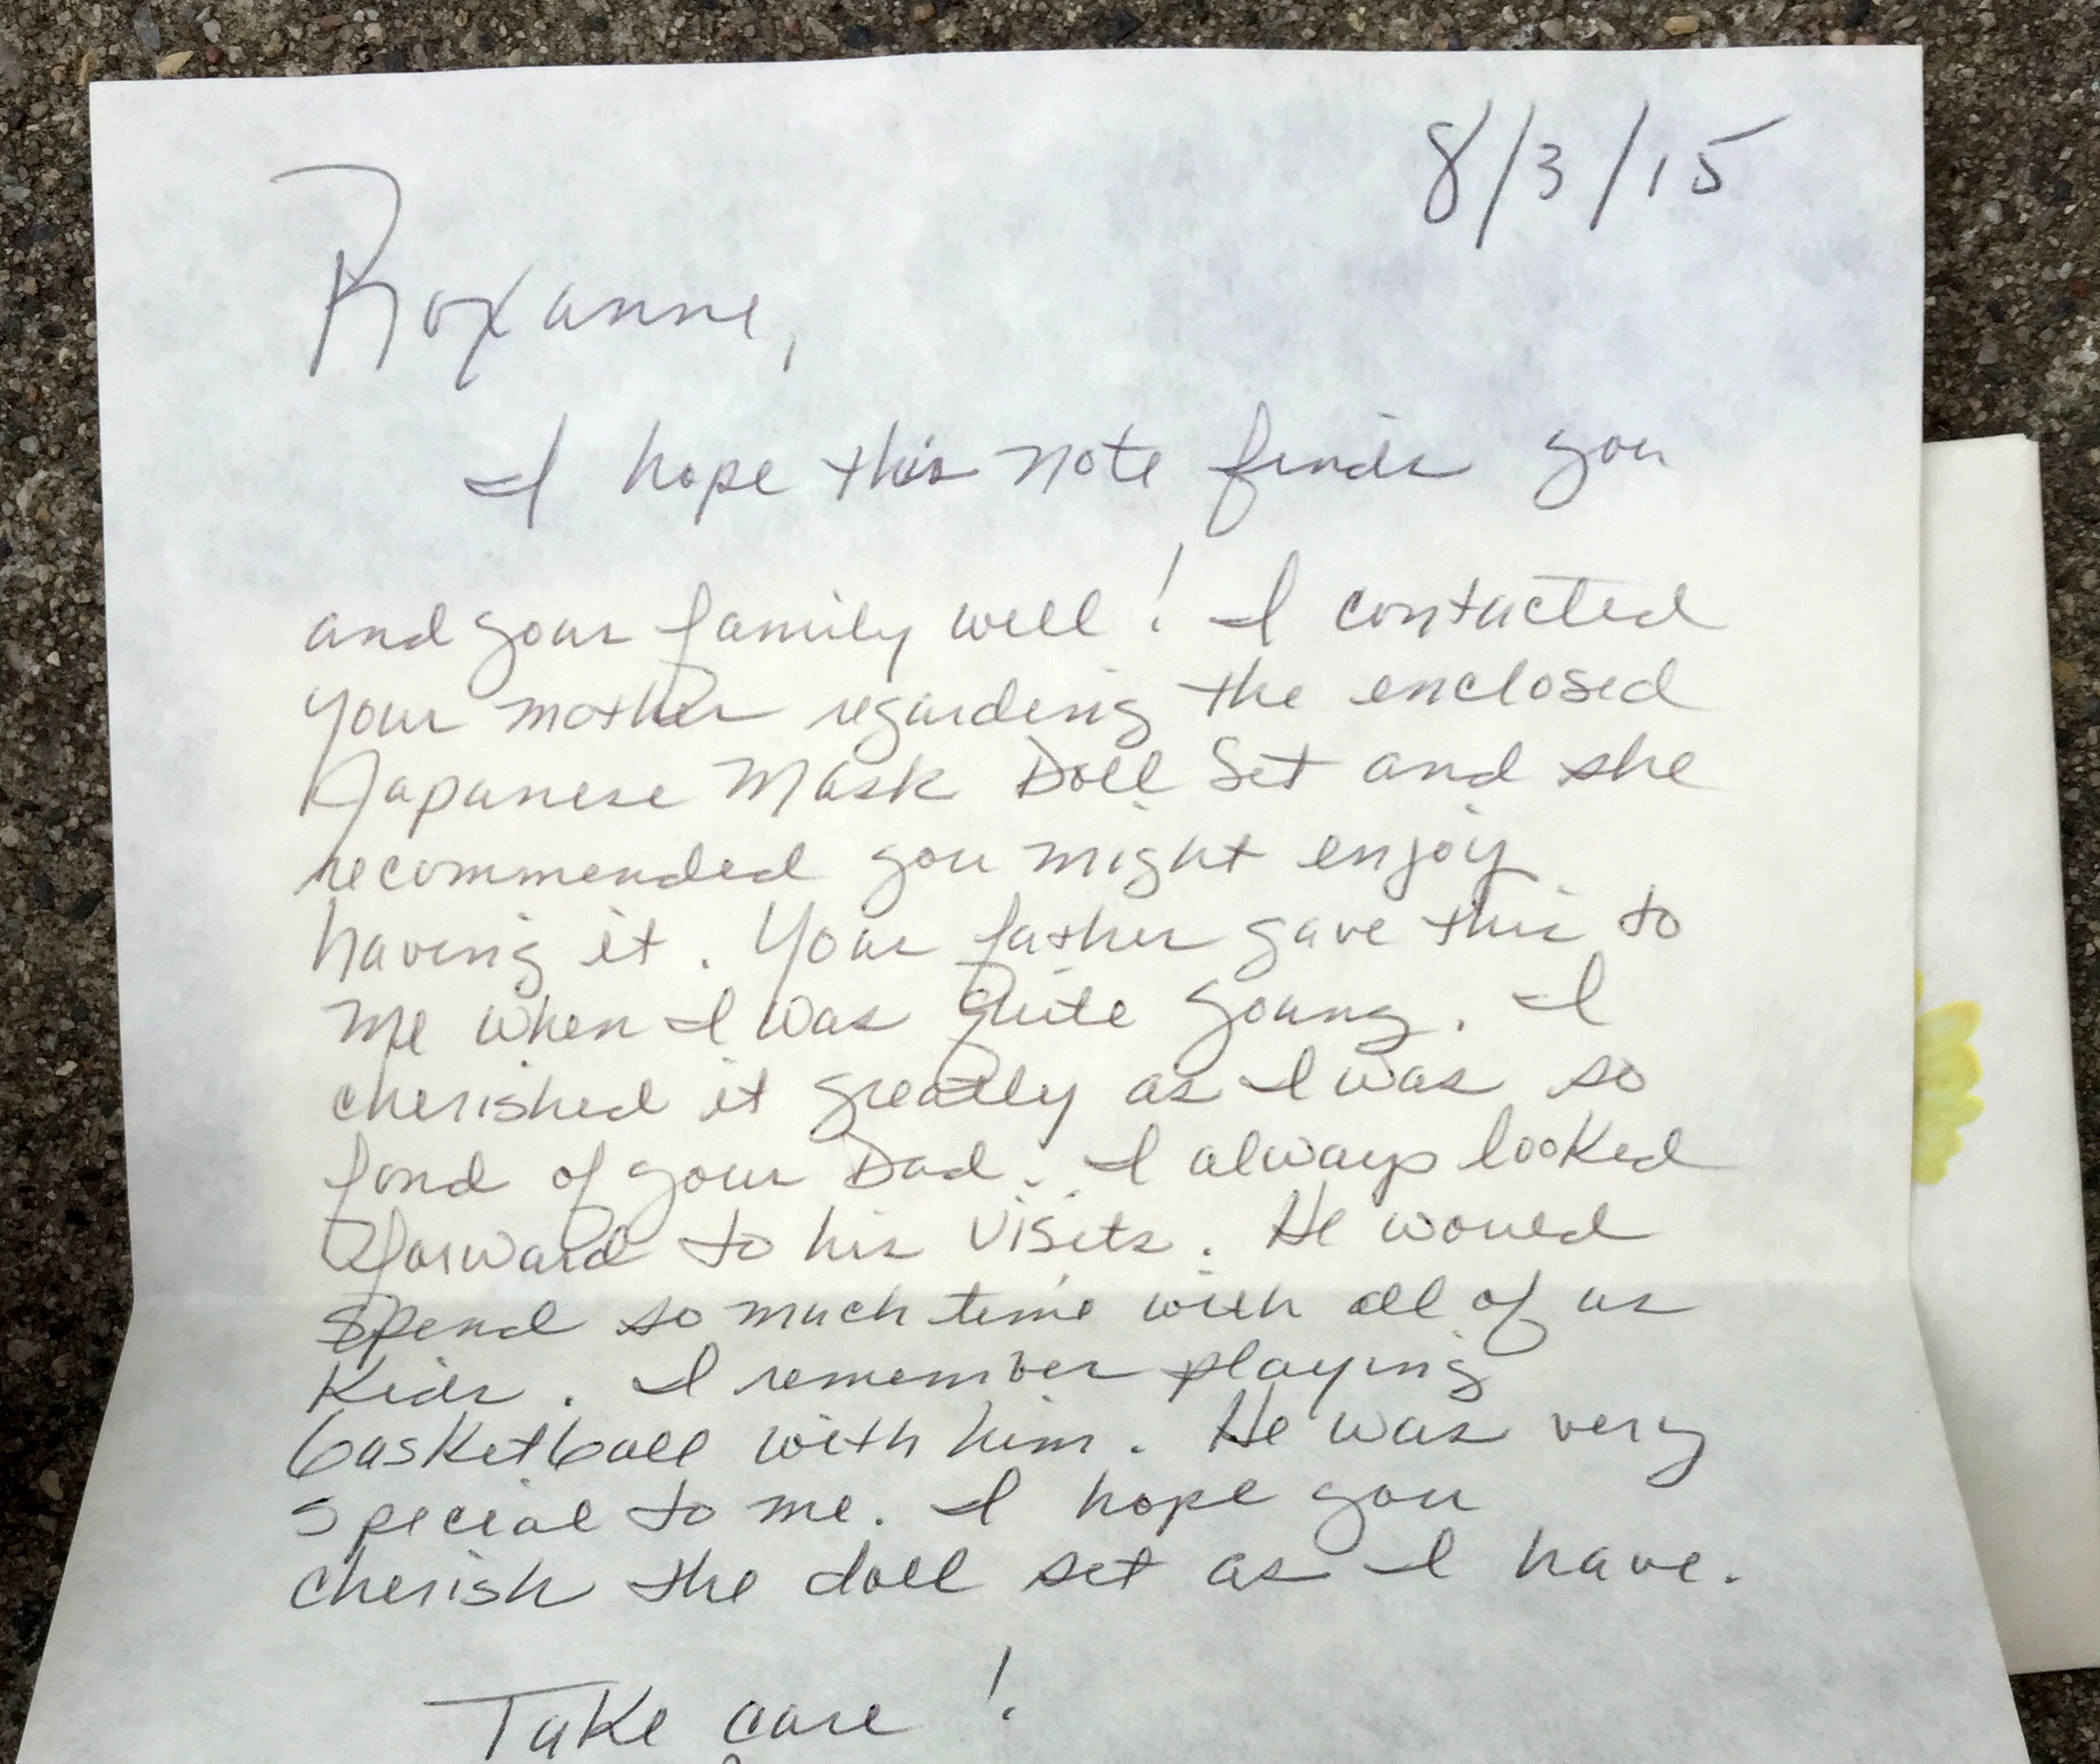 8/3/15
Roxanne,
I hope this note finds you
and your family well! I contacted
your mother regarding the enclosed
Japanese Mask Doll Set and she
recommended you might enjoy
having it. Your father gave this to
me when I was quite young. I
cherished it greatly as I was so
fond of your Dad. I always looked
forward to his visits. He would
spend so much time with all of us
kids. I remember playing
basketball with him. He was very
special to me. I hope you
cherish the doll set as I have.
Take care!